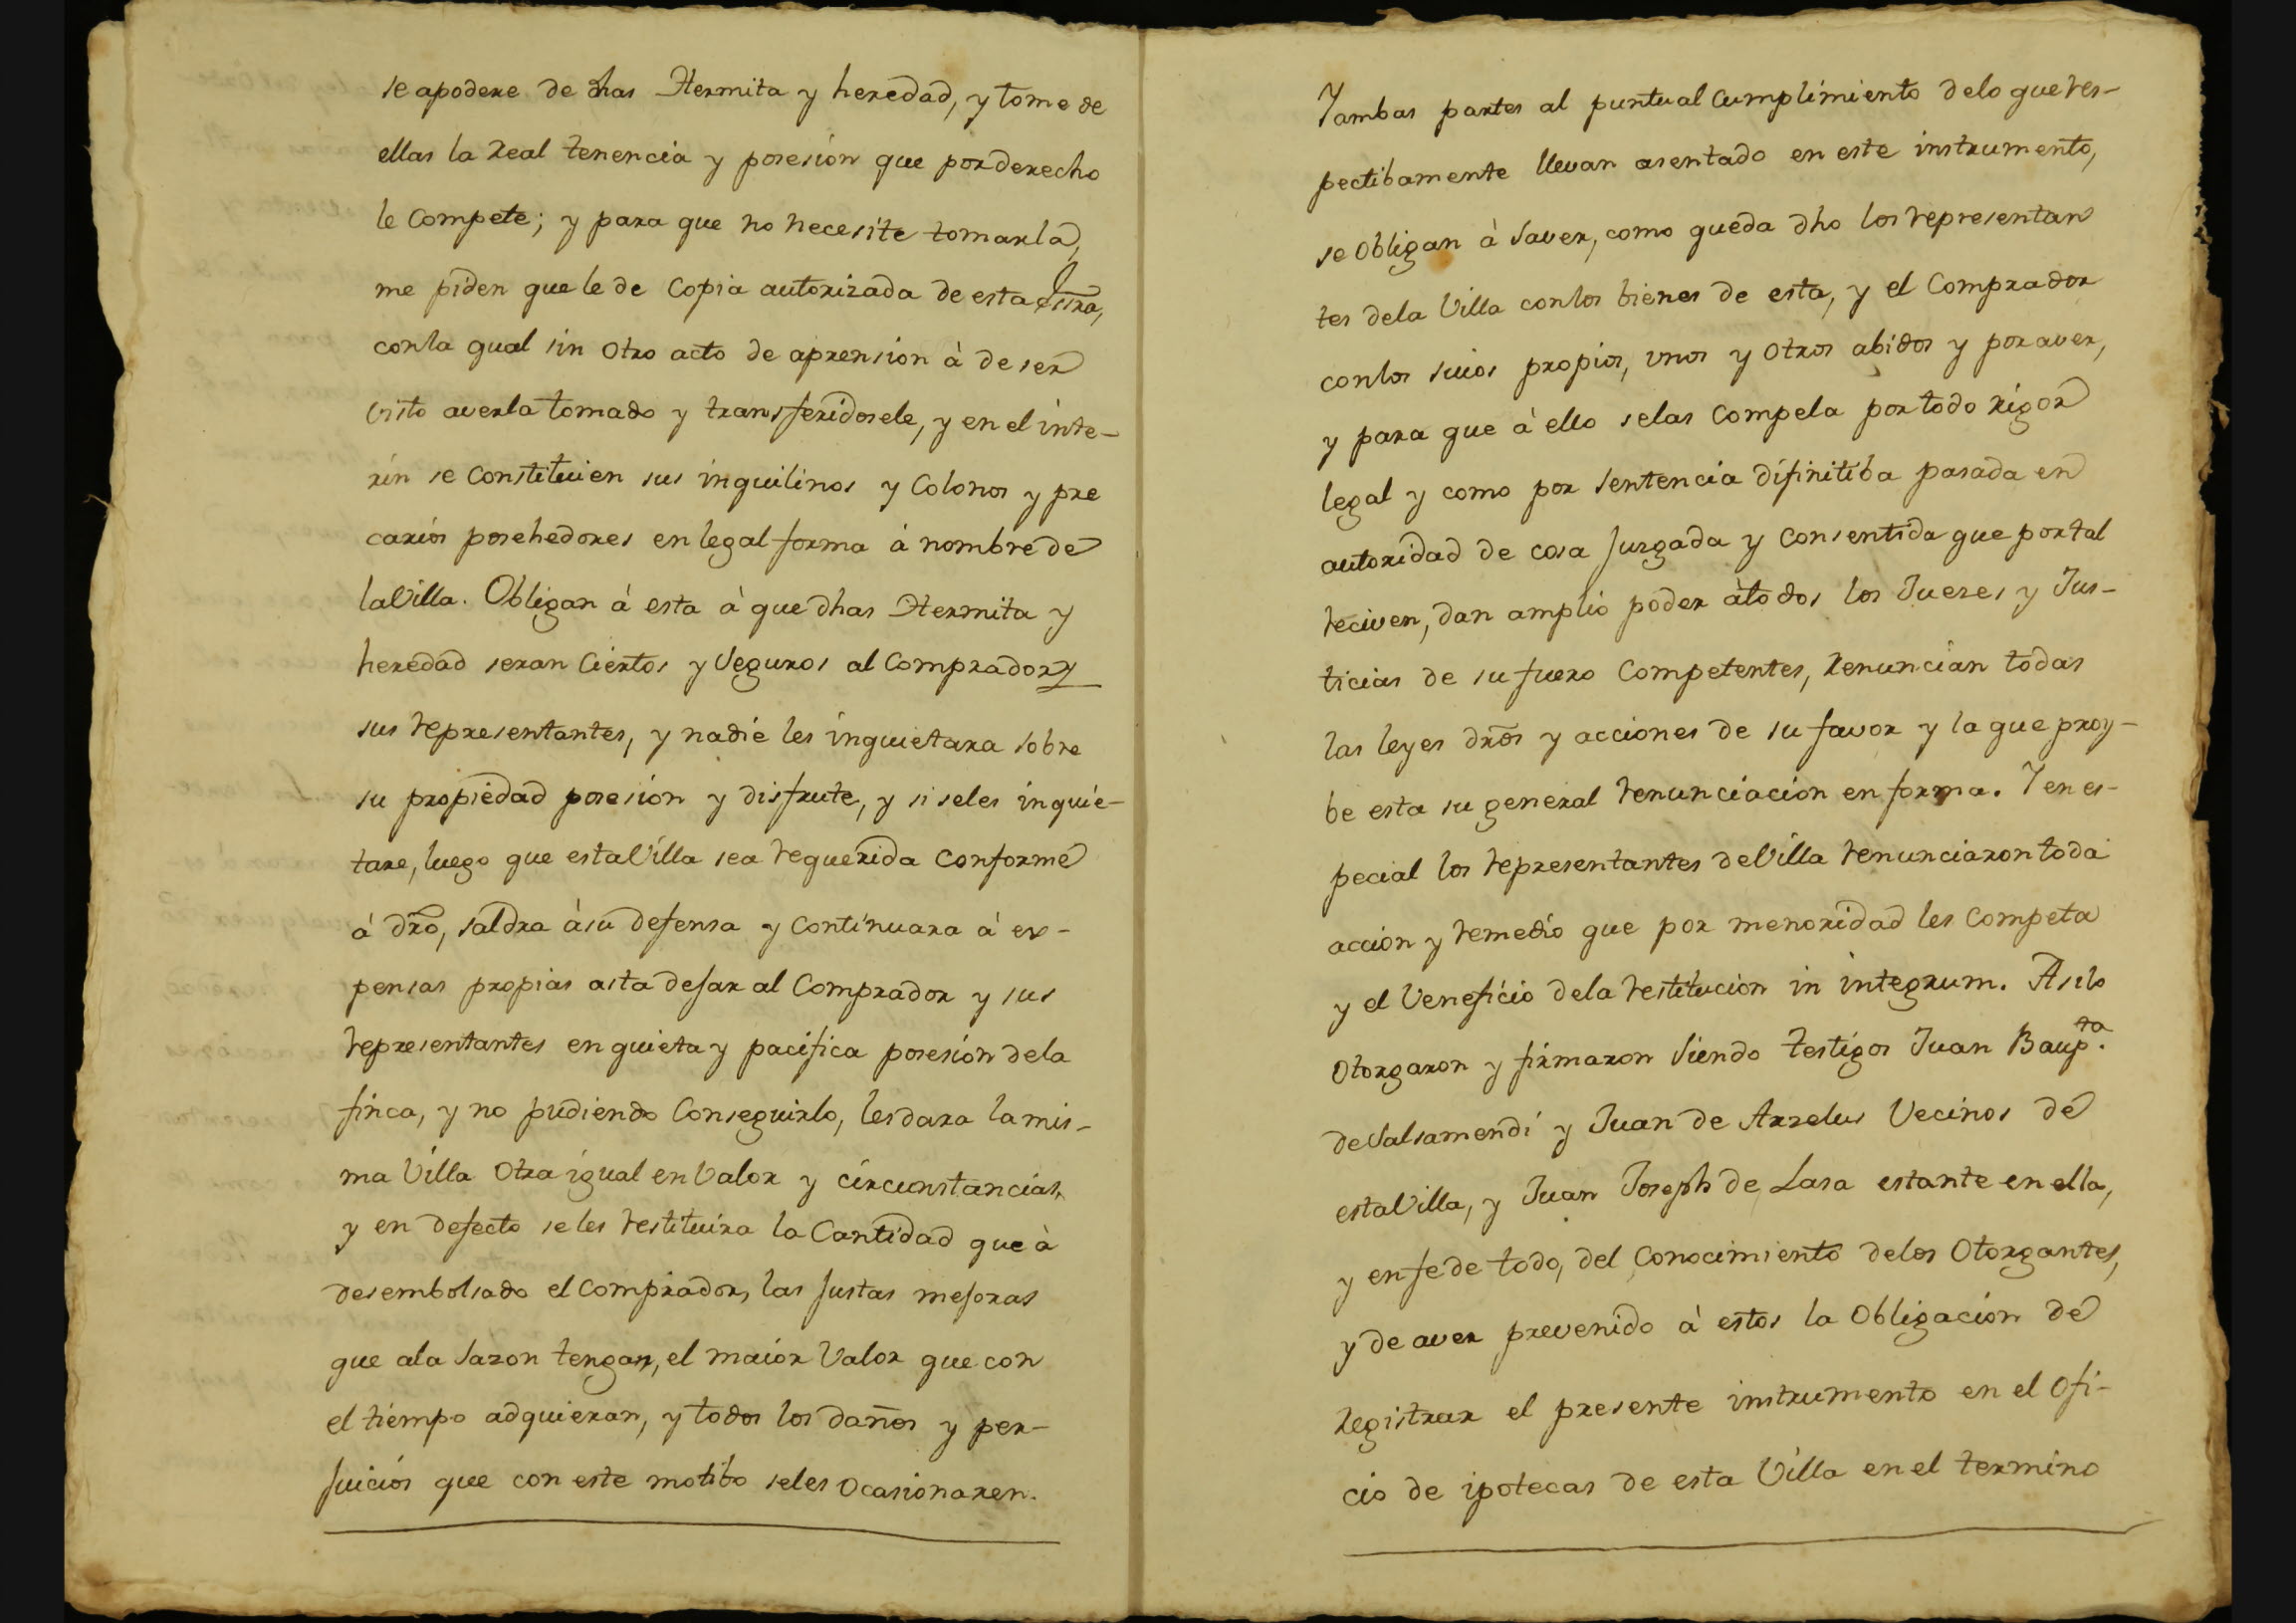 se apodere de dhas Hermita y heredad, y tome de
ellas la Real tenencia y posesion que por derecho
le Compete; y para que no necesite tomarla,
me piden que le de Copia autorizada de esta Essra,
con la qual sin otro acto de aprension à de ser
visto averla tomado y transferidosele, y en el inte-
rin se Constituien sus inquilinos y Colonos y pre
carios posehedores en legal forma à nombre de
la Villa. Obligan à esta à que dhas Hermita y
heredad seran Ciertos y Seguros al Comprador y
sus representantes, y nadie les inquietara sobre
su propiedad posesion y disfrute, y si seles inquie-
tare, luego que esta Villa sea requerida Conforme
à dro, saldra à su defensa y Continuara à ex-
pensas propias asta dejar al Comprador y sus
representantes en quieta y pacifica posesion dela
finca, y no pudiendo Conseguirlo, les dara la mis-
ma Villa Otra igual en Valor y circunstancias,
y en defecto se les restituira la Cantidad que à
desembolsado el Comprador, las justas mejoras
que ala Sazon tengan, el maior Valor que con
el tiempo adquieran, y todos los daños y per-
juicios que con este motibo seles Ocasionaren.
Y ambas partes al puntual Cumplimiento delo que res-
pectibamente llevan asentado en este instrumento,
se Obligan à Saver, como queda dho los representan
tes dela Villa con los bienes de esta, y el Comprador
con los suios propios, unos y otros abidos y por aver,
y para que à ello selas Compela por todo rigor
legal y como por Sentencia difinitiba pasada en
autoridad de cosa Juzgada y Consentida que por tal
reciven, dan amplio poder à todos los Jueces y Jus-
ticias de su fuero Competentes, Renuncian todas
las leyes dros y acciones de su favor y la que proy-
be esta su general renunciacion en forma. Y en es-
pecial los representantes de Villa renunciaron toda
accion y remedio que por menoridad les Competa
y el Veneficio dela restitucion in integrum. Asilo
Otorgaron y firmaron Siendo testigos Juan Baup.ta
de Salsamendi y Juan de Arzelus Vecinos de
esta Villa, y Juan Joseph de Lasa estante en ella,
y en fe de todo, del Conocimiento delos Otorgantes,
y de aver prevenido à estos la Obligacion de
registrar el presente instrumento en el Ofi-
cio de ipotecas de esta Villa en el termino